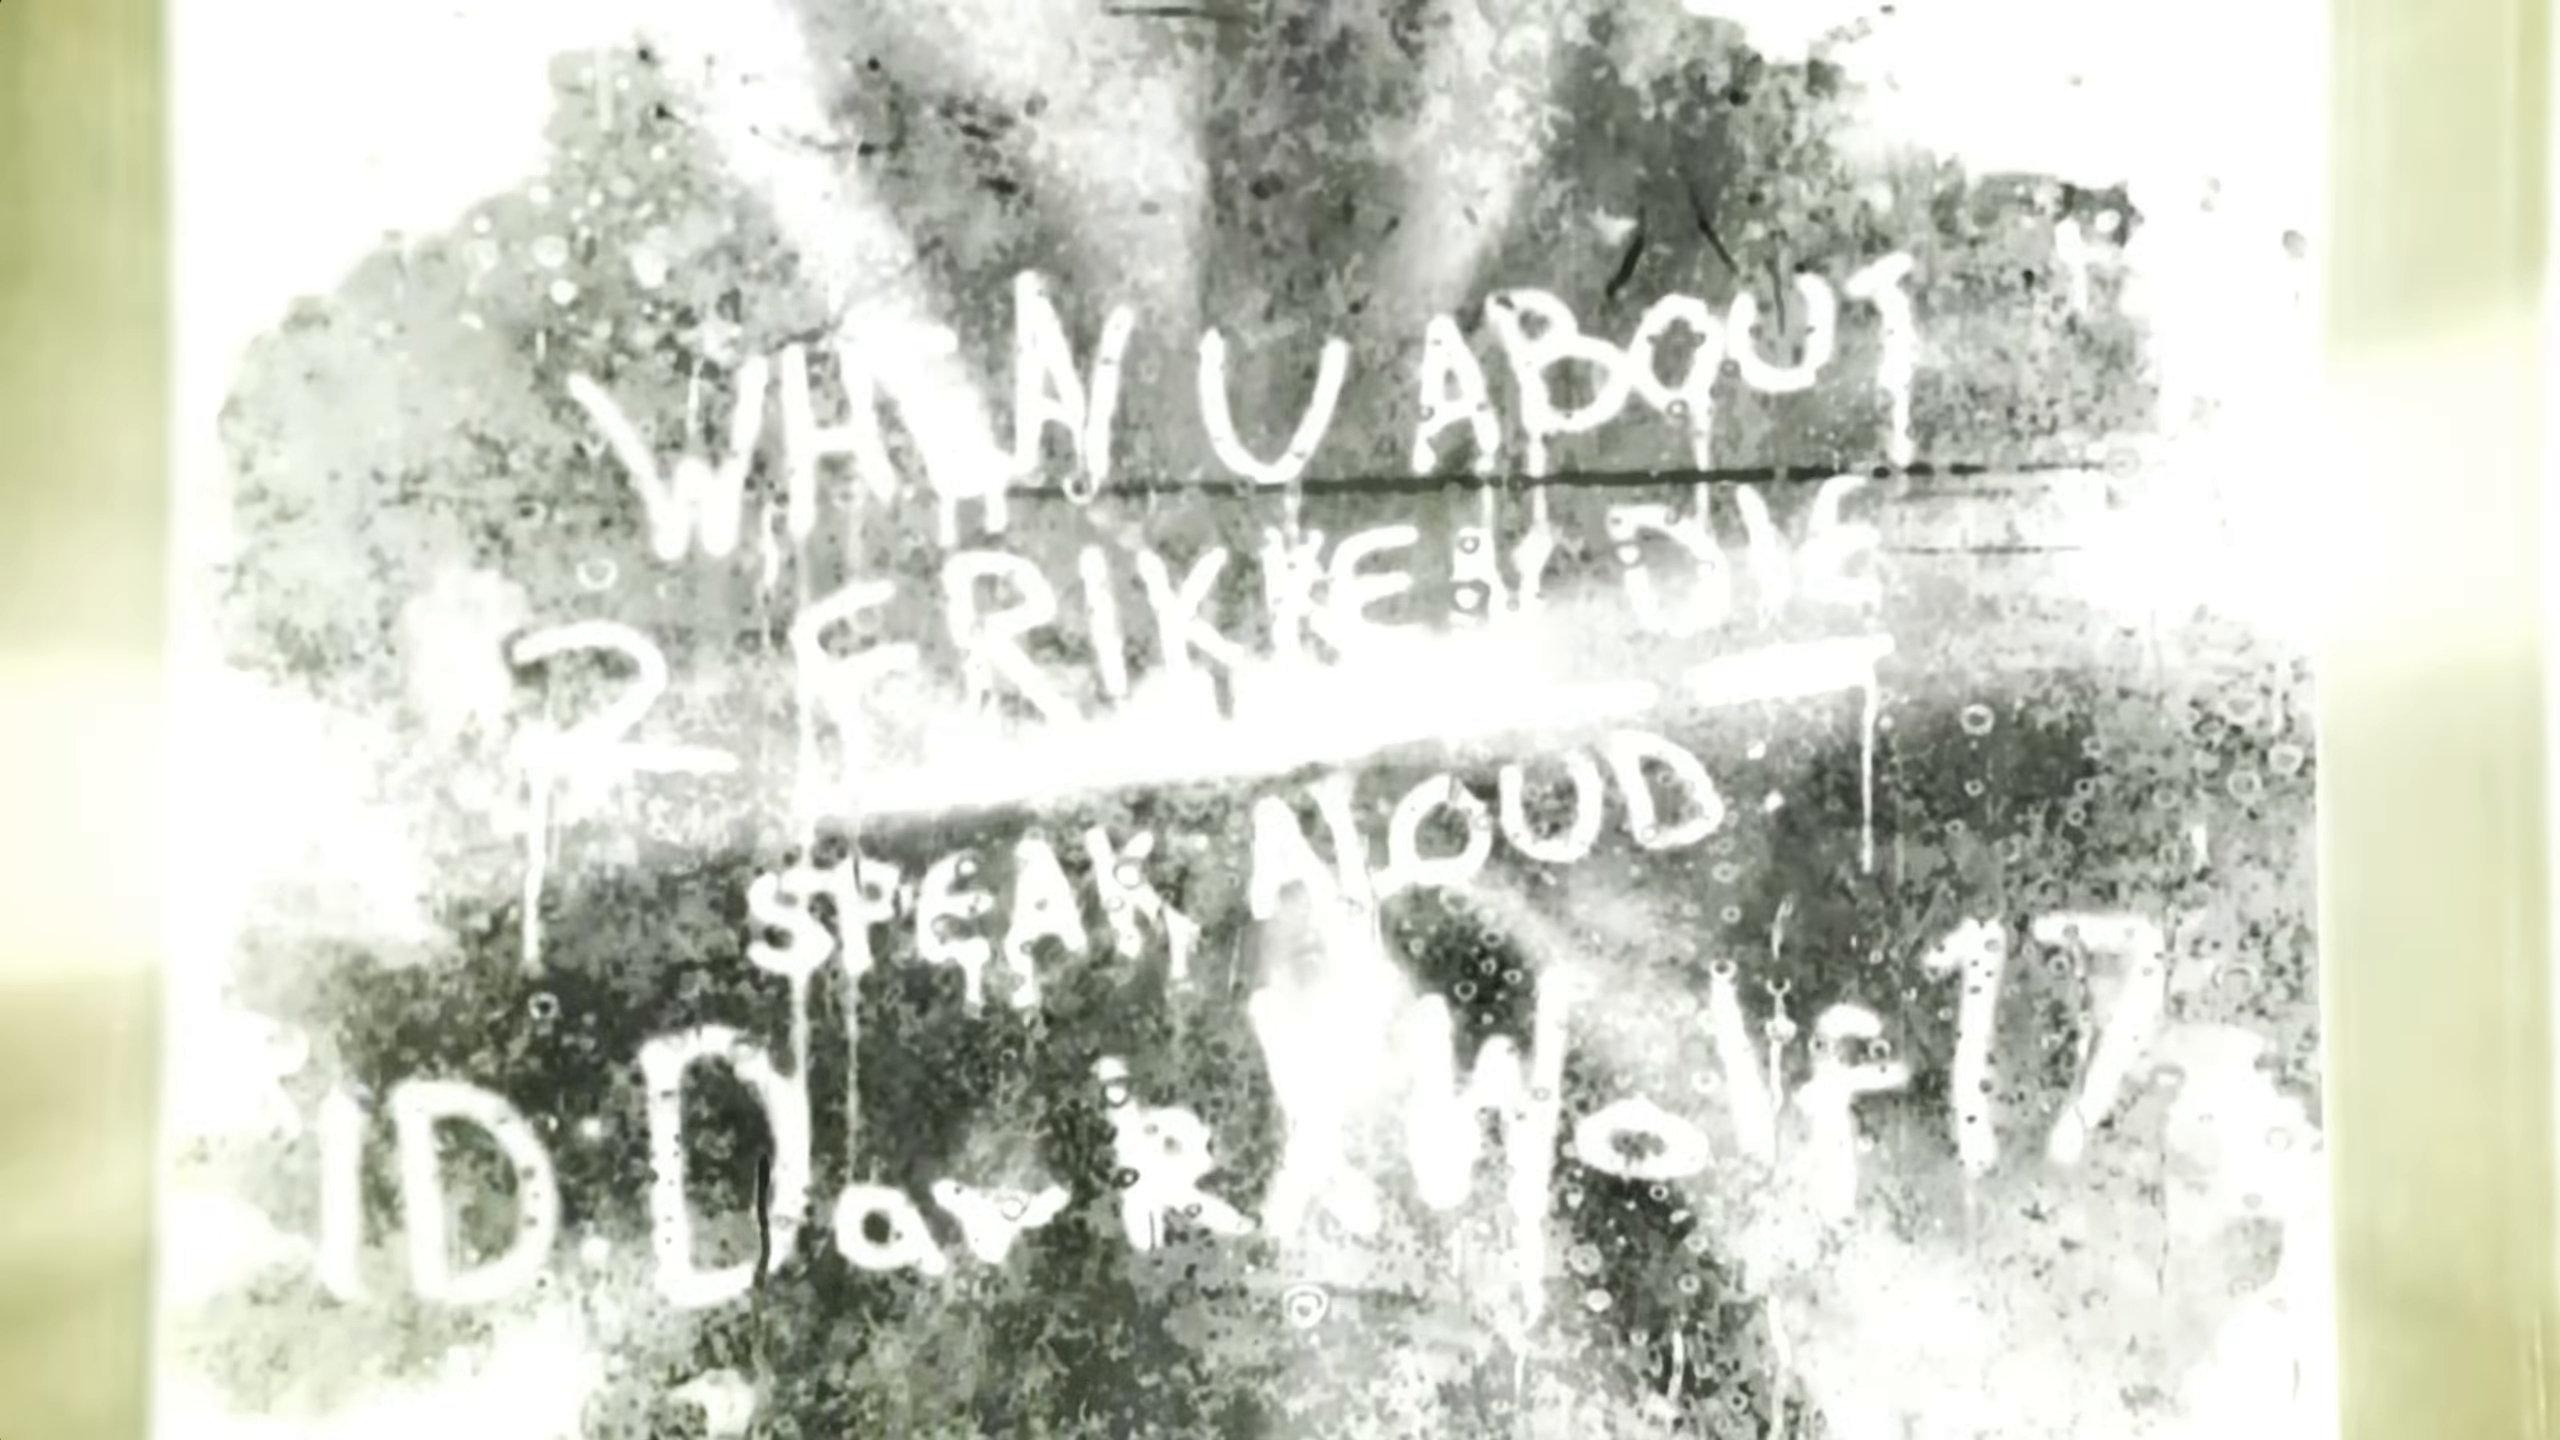 WHEN U ABOUT
2 FRIKKEN DIE
SPEAK ALOUD
ID DarkWolf17